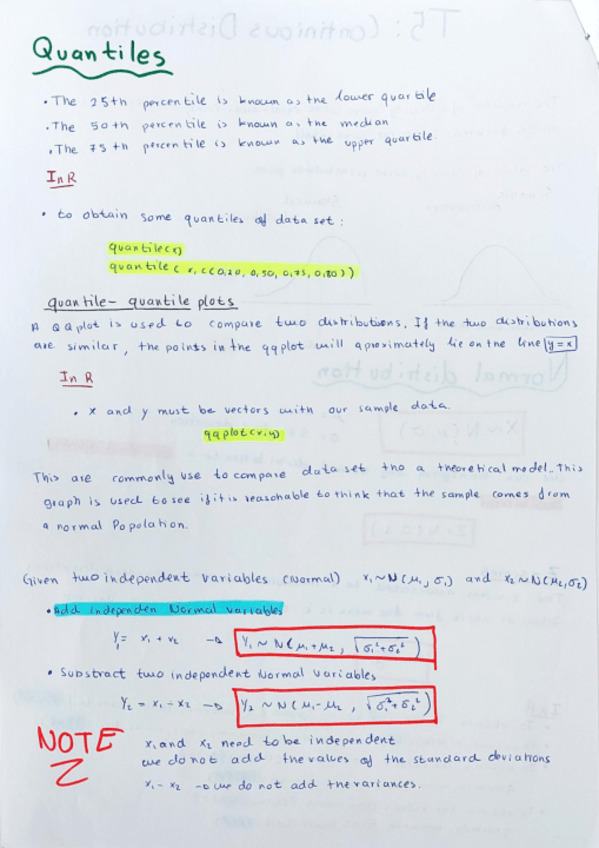 Quantiles
• The 25th percentile is known as the lower quartile
• The 50th percentile is known as the median
• The 75th percentile is known as the upper quartile.
In R
• to obtain some quantiles of data set:
quantile(x)
quantile(x, c(0,20, 0,50, 0,75, 0,80))
quantile-quantile plots
A QQplot is used to compare two distributions. If the two distributions
are similar, the points in the qqplot will aproximately lie on the line y=x
In R
• x and y must be vectors with our sample data.
qqplot(x,y)
This are commonly use to compare data set tno a theoretical model. This
graph is used to see if it is reasonable to think that the sample comes from
a normal Popolation.
Given two independent variables (Normal) x₁~N(μ₁, σ₁) and x₂~N(μ₂, σ₂)
• Add independen Normal variables
Y₁= x₁ + x₂ → Y₁ ~ N(μ₁+μ₂, √σ₁²+σ₂²)
• Substract two independent Normal variables
Y₂ = x₁ - x₂ → Y₂ ~ N(μ₁-μ₂, √σ₁²+σ₂²)
NOTE
x₁ and x₂ need to be independent
we do not add the values of the standard deviations
x₁ - x₂ → we do not add the variances.